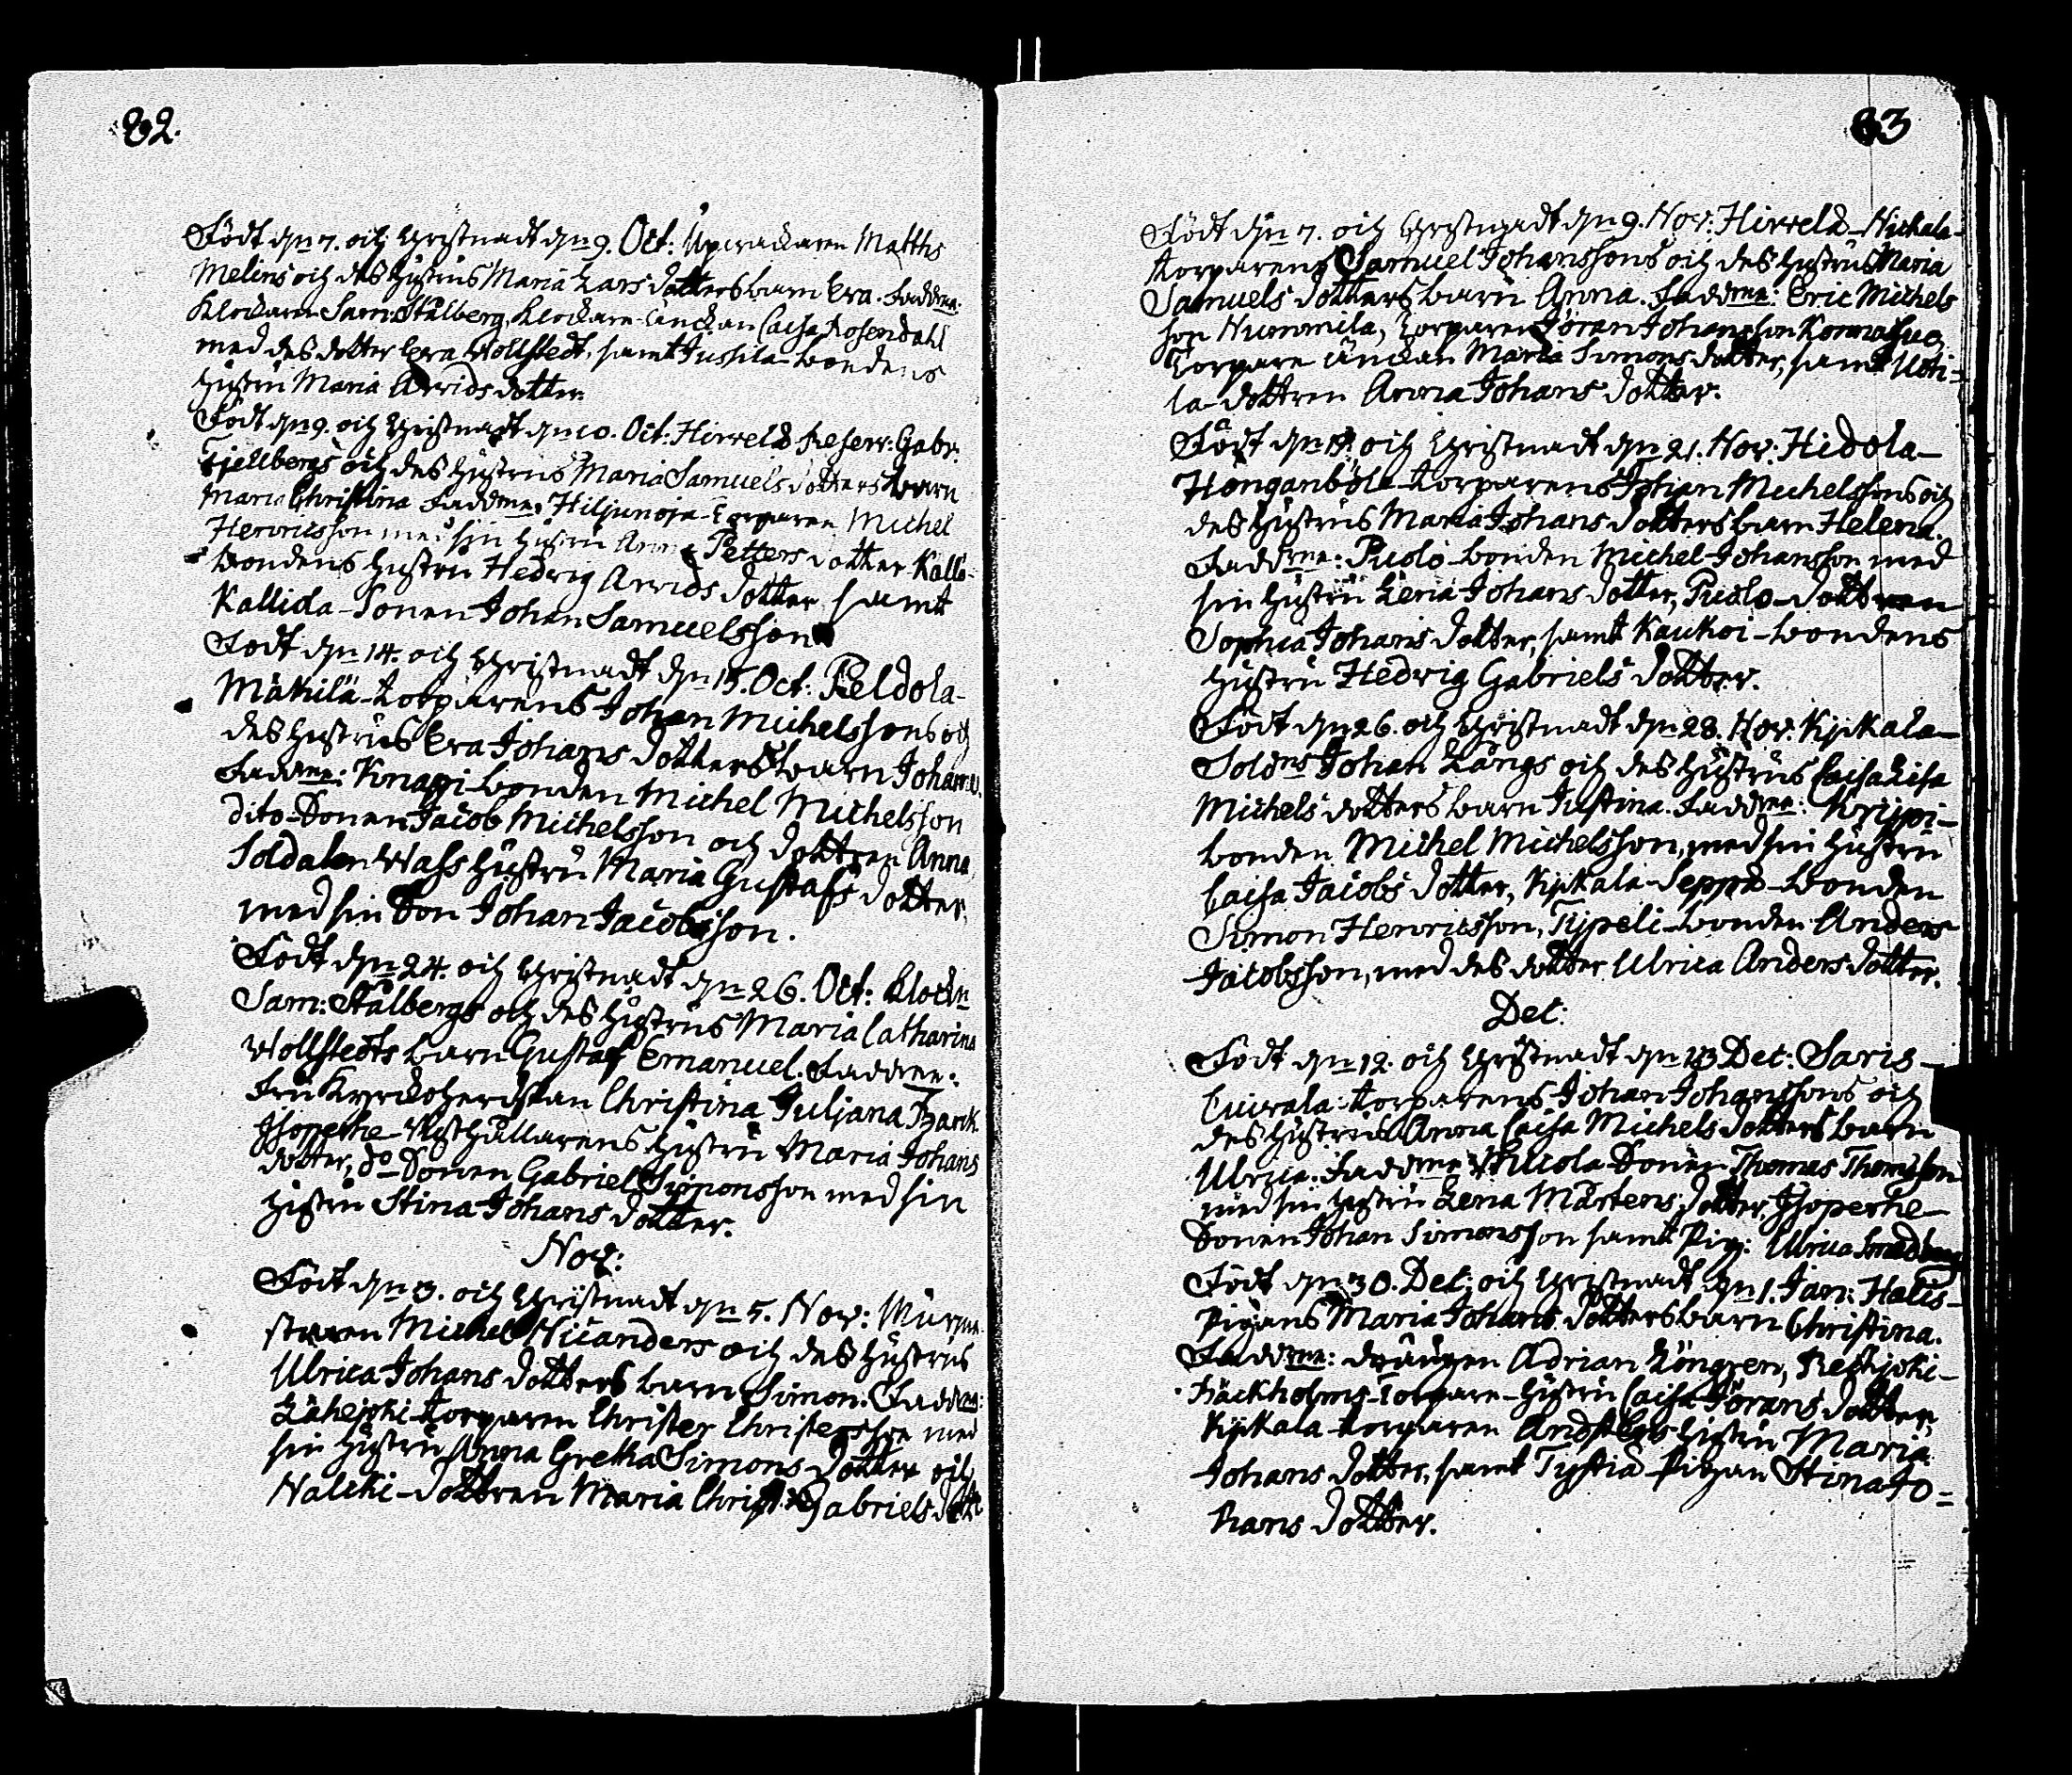 82.
Födt d. 7. och Christnadt d. 9. Oct: Matths
Melins och des Hustrus Maria Lars dotters barn Eva. Faddrne:
Klockaren Sam: Stålberg, Klockare-änckan Caisa Rosendahl
med des dotter Eva Wollstedt, samt Jushila-bondens
Hustru Maria Arvids dotter.
Födt d. 9. och Christnadt d. 10. Oct: Hirvelä Reserv: Gabr:
Fjellbergs och des Hustrus Maria Samuels dotters barn
Maria Christina Faddrne: Hiljunoja-Torparen Michel
Henricsson med sin Hustru Anna Petters dotter Källä-
bondens Hustru Hedvig Arvids dotter samt
Kallida-Sonen Johan Samuelsson
Födt d. 14. och Christnadt d. 15. Oct: Peldola-
Mäkilä-torparens Johan Michelssons och
des Hustrus Eva Johans dotters barn Johannes.
Faddrne: Knapi-bonden Michel Michelsson
dito-Sonen Jacob Michelsson och dottren Anna,
Soldaten Wass Hustru Maria Gustafs dotter,
med sin Son Johan Jacobsson.
Födt d. 24. och Christnadt d. 26. Oct: Klockn
Sam: Stålbergs och des Hustrus Maria Catharina
Wollstedts barn Gustaf Emanuel. Faddrne:
Fru Kyrckoherdskan Christina Juljana
Isoperhe-Husthållarens Hustru Maria Johans
dotter, do Sonen Gabriel Simonsson med sin
Hustru Stina Johans dotter.
Nov:
Födt d. 3. och Christnadt d. 5. Nov: Murme-
staren Michel Nicanders och des Hustrus
Ulrica Johans dotters barn Simon. Faddrne:
Lähejoki-torparen Christer Christersson med
sin Hustru Anna Gretha Simons dotter och
Nalcki-dottren Maria Christ: Gabriels dotter
83
Födt d. 7. och Christnadt d. 9. Nov: Hirvelä-Nickala-
torparens Samuel Johanssons och des Hustrus Maria
Samuels dotters barn Anna. Faddrne: Eric Michels
son Nummila, Torparen Jöran Johansson
Torpare änckan Maria Simons dotter, samt Uoti=
la-dottren Anna Johans dotter.
Födt d. 19. och Christnadt d. 21. Nov: Hidola-
Honganböle-torparens Johan Michelssons och
des Hustrus Maria Johans dotters barn Helena.
Faddrne: Puolo-bonden Michel Johansson med
sin Hustru Lena Johans dotter, Puolo-dottren
Sophia Johans dotter, samt Kaukoi-bondens
Hustru Hedvig Gabriels dotter.
Födt d. 26. och Christnadt d. 28. Nov: Kijkala-
Soldns Johan Långs och des Hustrus Caisa Lisa
Michels dotters barn Justina. Faddrne: Krijpi-
bonden Michel Michelsson, med sin Hustru
Caisa Jacobs dotter, Kijkala-Seppä-bonden
Simon Henricsson, Tijpeli-bonden Anders
Jacobsson, med des dotter Ulrica Anders dotter.
Dec:
Födt d. 12. och Christnadt d. 13 Dec: Saris-
torparens Johan Johanssons och
des Hustrus Anna Caisa Michels dotters barn
Ulrica. Faddrne Sonen Thomas Thomsson
med sin Hustru Lena Mårtens dotter, Isoperhe-
Sonen Johan Simonsson samt Pig: Ulrica Smedberg
Födt d. 30. Dec: och Christnadt d. 1. Jan: Halis-
Pigans Maria Johans dotters barn Christina.
Faddrne: drängen Adrian Löngren,
Bäckholms-Torpare-Hustru Caisa Jörans dotter,
Kijkala-torparen Hustru Maria
Johans dotter, samt Tystiä-Pigan Stina Jo=
hans dotter.